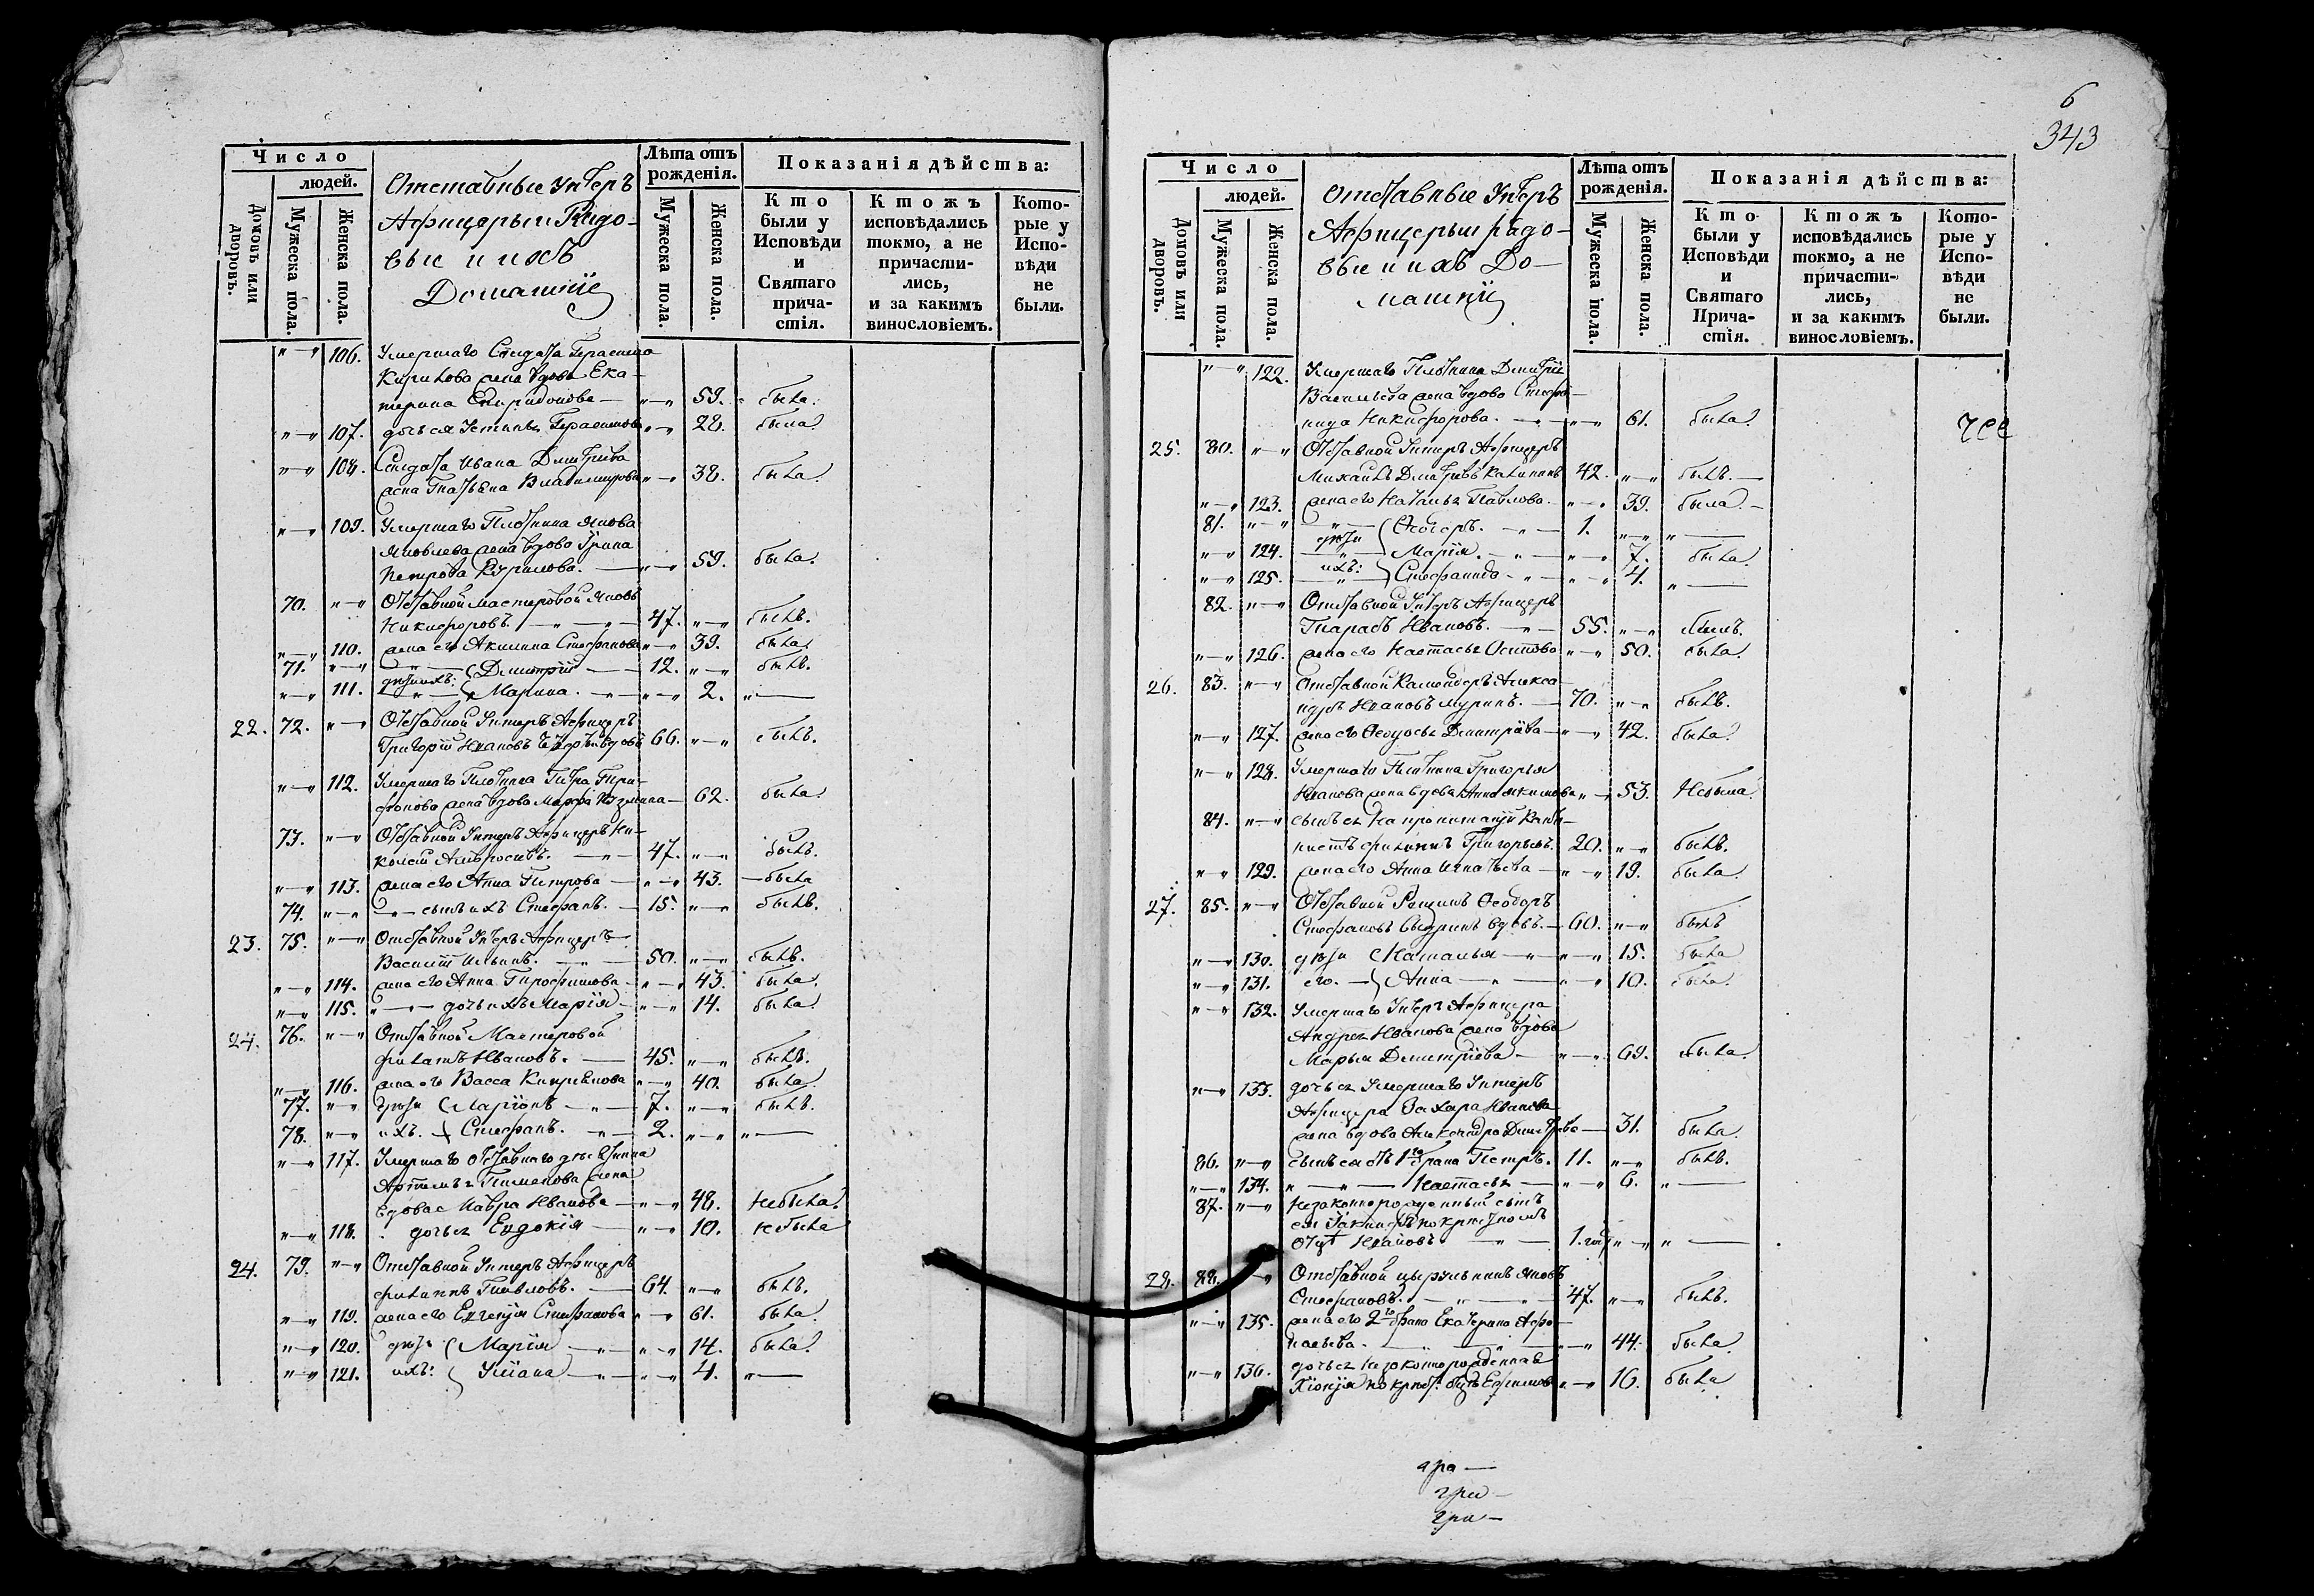 6
343
Число
людей.
Домовъ или дворовъ.
Мужеска пола.
Женска пола.
Отставные Унтеръ
Афицеры и Рядо-
вые и ихъ
Домашніе
Лѣта отъ
рожденія.
Мужеска пола.
Женска пола.
Показанія дѣйства:
Кто
были у
Исповѣди
и
Святаго
прича-
стія.
Ктожъ
исповѣдались
токмо, а не
причасти-
лись,
и за какимъ
винословіемъ.
Кото-
рые у
Испо-
вѣди
не
были.
"—" 106. Умершаго Солдата Герасима
Кирилова жена вдова Ека-
терина Спиридонова — "—" 59. была.
"—" 107. дочь ея Устинья Герасимова "—" 28. была.
"—" 108. Солдата Ивана Дмитріева
жена Татьяна Владимирова "—" 38. была.
"—" 109. Умершаго Плотника Якова
Яковлева жена вдова Ирина
Петрова "—" 59. была.
70. "—" Отставной мастеровой Яковъ
Никифоровъ. — 47. "—" былъ.
"—" 110. жена его Акилина Стефанова "—" 39. была.
71. "—" Димитрій — 12. "—" былъ.
дѣти ихъ:
"—" 111. Марина. — "—" 2. "—
22. 72. "—" Отставной Унтеръ Афицеръ
Григорій Ивановъ вдовъ 66. "—" былъ.
"—" 112. Умершаго Плотника Петра Три-
фонова жена вдова Марфа Козмина — 62. была.
73. "—" Отставной Унтеръ Афицеръ Ни-
колай Амвросиевъ. — 47. "—" былъ.
"—" 113. жена его Анна Петрова — "—" 43. — была
74. "—" — сынъ ихъ Стефанъ. — 15. "—" былъ.
23. 75. "—" Отставной Унтеръ Афицеръ
Василій Ильинъ. — 50. "—" былъ.
"—" 114. жена его Анна Трофимова — "—" 43. была.
"—" 115. "— дочь ихъ Марія — "—" 14. была.
24. 76. "—" Отставной Мастеровой
Филатъ Ивановъ. — 45. "—" былъ.
"—" 116. жена его Васса Кипріянова "—" 40. была.
77. "—" дѣти Ларіонъ — 7. "—" былъ.
78. "—" ихъ. Стефанъ. — 2. "—" "—
"—" 117. Умершаго отставнаго
Артемья Пименова жена
вдова Мавра Иванова — "—" 48. Небыла.
"—" 118. дочь ея Евдокія — "—" 10. небыла
24. 79. "—" Отставной Унтеръ Афицеръ
Филиппъ Павловъ. — 64. "—" былъ.
"—" 119. жена его Евгенія Стефанова "—" 61. была.
"—" 120. дѣти Марія — "—" 14. была.
"—" 121. ихъ: Уліана — "—" 4. "—
Число
людей.
Домовъ или дворовъ.
Мужеска пола.
Женска пола.
Отставные Унтеръ
Афицеры и рядо-
вые и ихъ До-
машніи
Лѣта отъ
рожденія.
Мужеска пола.
Женска пола.
Показанія дѣйства:
Кто
были у
Исповѣди
и
Святаго
Прича-
стія.
Ктожъ
исповѣдались
токмо, а не
причасти-
лись,
и за какимъ
винословіемъ.
Кото-
рые у
Испо-
вѣди
не
были.
"—" 122. Умершаго Плотника Дмитрія
Васильева жена вдова Стефа-
нида Никифорова. — "—" 61. была.
25. 80. "—" Отставной Унтеръ Афицеръ
Михаилъ Дмитріевъ Калининъ 42. "—" былъ. —
"—" 123. жена его Наталья Павлова. "—" 39. была. —
81. "—" Ѳеодоръ. — 1. "—" "—
дѣти
"—" 124. Марія. — "—" 7. была.
ихъ:
"—" 125. Стефанида — "—" 4. "—
82. "—" Отставной Унтеръ Афицеръ
Тарасъ Ивановъ. — 55. "—" былъ.
"—" 126. жена его Настасья Осипова "—" 50. была.
26. 83. "—" Отставной Алекса-
ндръ Ивановъ Муринъ. — 70. "—" былъ.
"—" 127. жена его Ѳедосья Димитріева "—" 42. была.
"—" 128. Умершаго Плотника Григорья
Иванова жена вдова Анна Акимова "—" 53. Небыла.
84. "—" сынъ ея на пропитаніи Канто-
нистъ Филиппъ Григорьевъ. 20. "—" былъ.
"—" 129. жена его Анна Игнатьева — "—" 19. была.
27. 85. "—" Отставной Ѳеодоръ
Стефановъ вдовъ. — 60. "—" былъ
"—" 130. дѣти Наталья — "—" 15. была
"—" 131. его. — Анна — "—" 10. была.
"—" 132. Умершаго Унтеръ Афицера
Андрея Иванова жена вдова
Марья Димитріева — "—" 69. была.
"—" 133. дочь ея Умершаго Унтеръ
Афицера Захара Иванова
жена вдова Александра Дмитріева — 31. была.
86. "—" сынъ ея отъ 1го брака Петръ. 11. "—" былъ.
"—" 134. "— Настасья — "—" 6. "—
87. "—" Незаконнорожденный сынъ
ея Іакинфъ по крестному
отцу Ивановъ — 1. годъ "—" "—
28. 88. "—" Отставной цырульникъ Яковъ
Стефановъ. — 47. "—" былъ.
"—" 135. жена его 2го брака Екатерина Афо-
насьева. — "—" 44. была
"—" 136. дочь ея незаконнорожденная
Хіонія по крестн. отцѣ Ефимова "—" 16. была